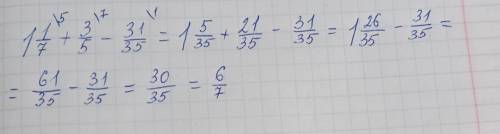 1 1/7 \5 + 3/5 \7 - 31/35 \1 = 1 5/35 + 21/35 - 31/35 = 1 26/35 - 31/35 =
= 61/35 - 31/35 = 30/35 = 6/7